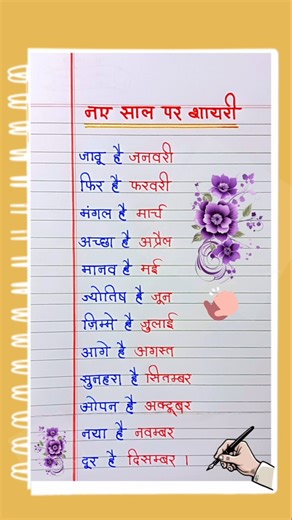 नए साल पर शायरी
जादू है जनवरी
फिर है फरवरी
मंगल है मार्च
अच्छा है अप्रैल
मानव है मई
ज्योतिष है जून
ज़िम्मे है जुलाई
आगे है अगस्त
सुनहरा है सितम्बर
ओपन है अक्टूबर
नया है नवम्बर
दूर है दिसम्बर ।